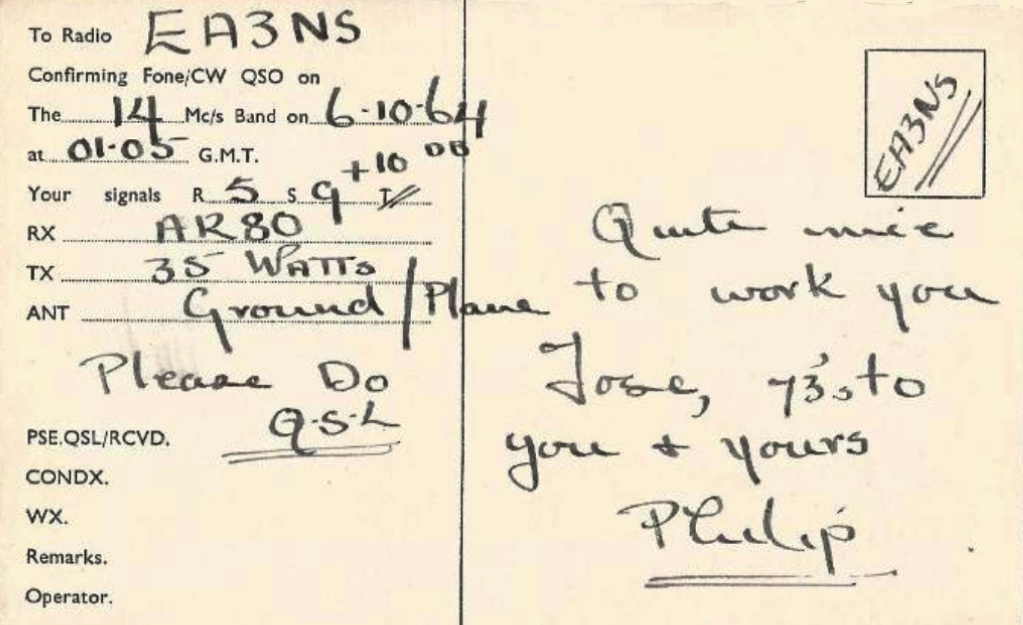 To Radio EA3NS
Confirming Fone/CW QSO on
The 14 Mc/s Band on 6-10-64
at 01-05 G.M.T.
Your signals R 5 S 9 +10 DB T
RX AR80
TX 35 WATTS
ANT Ground/Plane
Please Do
Q-S-L
PSE.QSL/RCVD.
CONDX.
WX.
Remarks.
Operator.
EA3NS
Quite nice
to work you
Jose, 73's to
you + yours
Philip